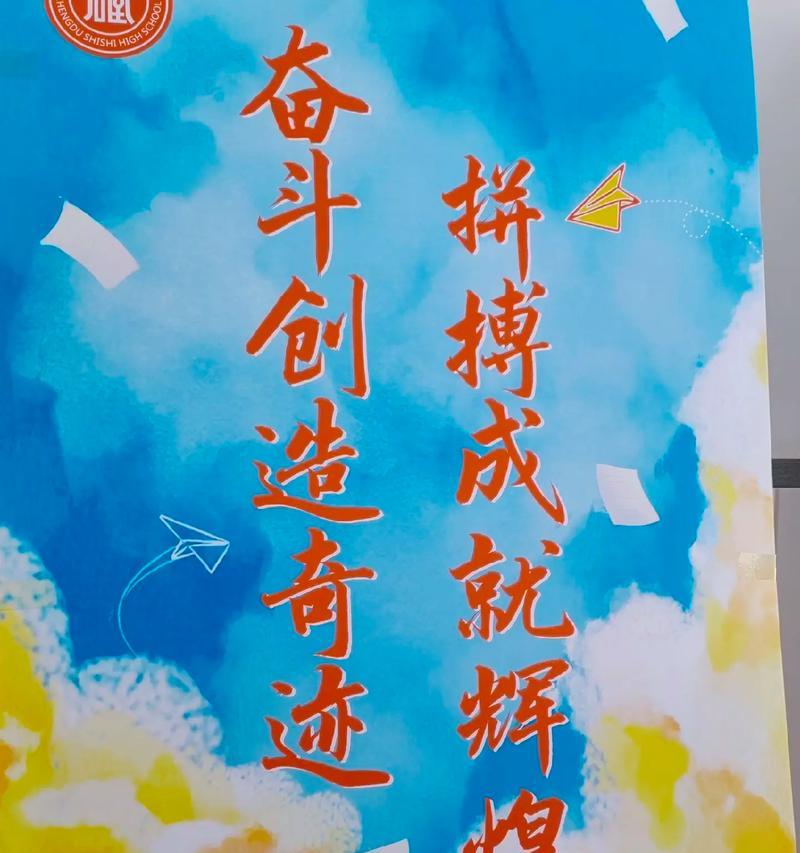 奋斗创造奇迹
拼搏成就辉煌
CHENGDU SHISHI HIGH SCHOOL